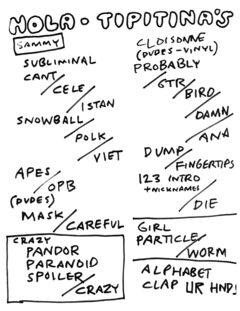 HOLA - TIPITINA'S
SAMMY
SUBLIMINAL
CANT/
CELE/
ISTAN
SNOWBALL/
POLK/
VIET
APES/
OPB
(DUDES)
MASK/
CAREFUL
CRAZY
PANDOR
PARANOID
SPOILER/
CRAZY
CLOISONNE
(DUDES-VINYL)
PROBABLY/
GTR/
BIRD/
DAMN/
ANA
DUMP/
FINGERTIPS
123 INTRO
+NICKNAMES/
DIE
GIRL
PARTICLE/
WORM
ALPHABET
CLAP UR HNDS